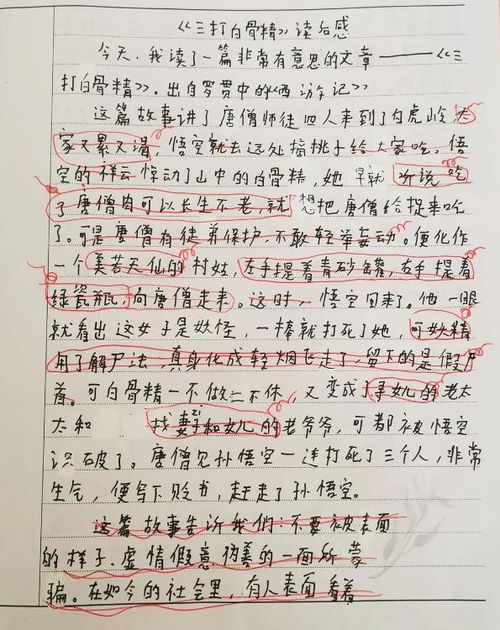 《三打白骨精》读后感
今天,我读了一篇非常有意思的文章——《三
打白骨精》.出自罗贯中的《西游记》
这篇故事讲了唐僧师徒四人来到了白虎岭大
家又累又渴,悟空就去远处摘桃子给大家吃。悟
空的祥云惊动了山中的白骨精,她早就听说吃
了唐僧肉可以长生不老,就想把唐僧给捉来吃
了。可是唐僧有徒弟保护,不敢轻举妄动。便化作
一个美若天仙的村姑,左手提着青砂罐,右手提着
绿瓷瓶,向唐僧走来。这时,悟空回来了。他一眼
就看出这女子是妖怪,一棒就打死了她,可妖精
用了解尸法,真身化成轻烟飞走了,留下的是假尸
首。可白骨精一不做二不休,又变成了寻女儿的老太
太和 找妻子和女儿的老爷爷,可都被悟空
识破了。唐僧见孙悟空一连打死了三个人,非常
生气,便写下贬书,赶走了孙悟空。
这篇故事告诉我们:不要被表面
的样子.虚情假意.伪善的一面所蒙
骗。在如今的社会里,有人表面看着